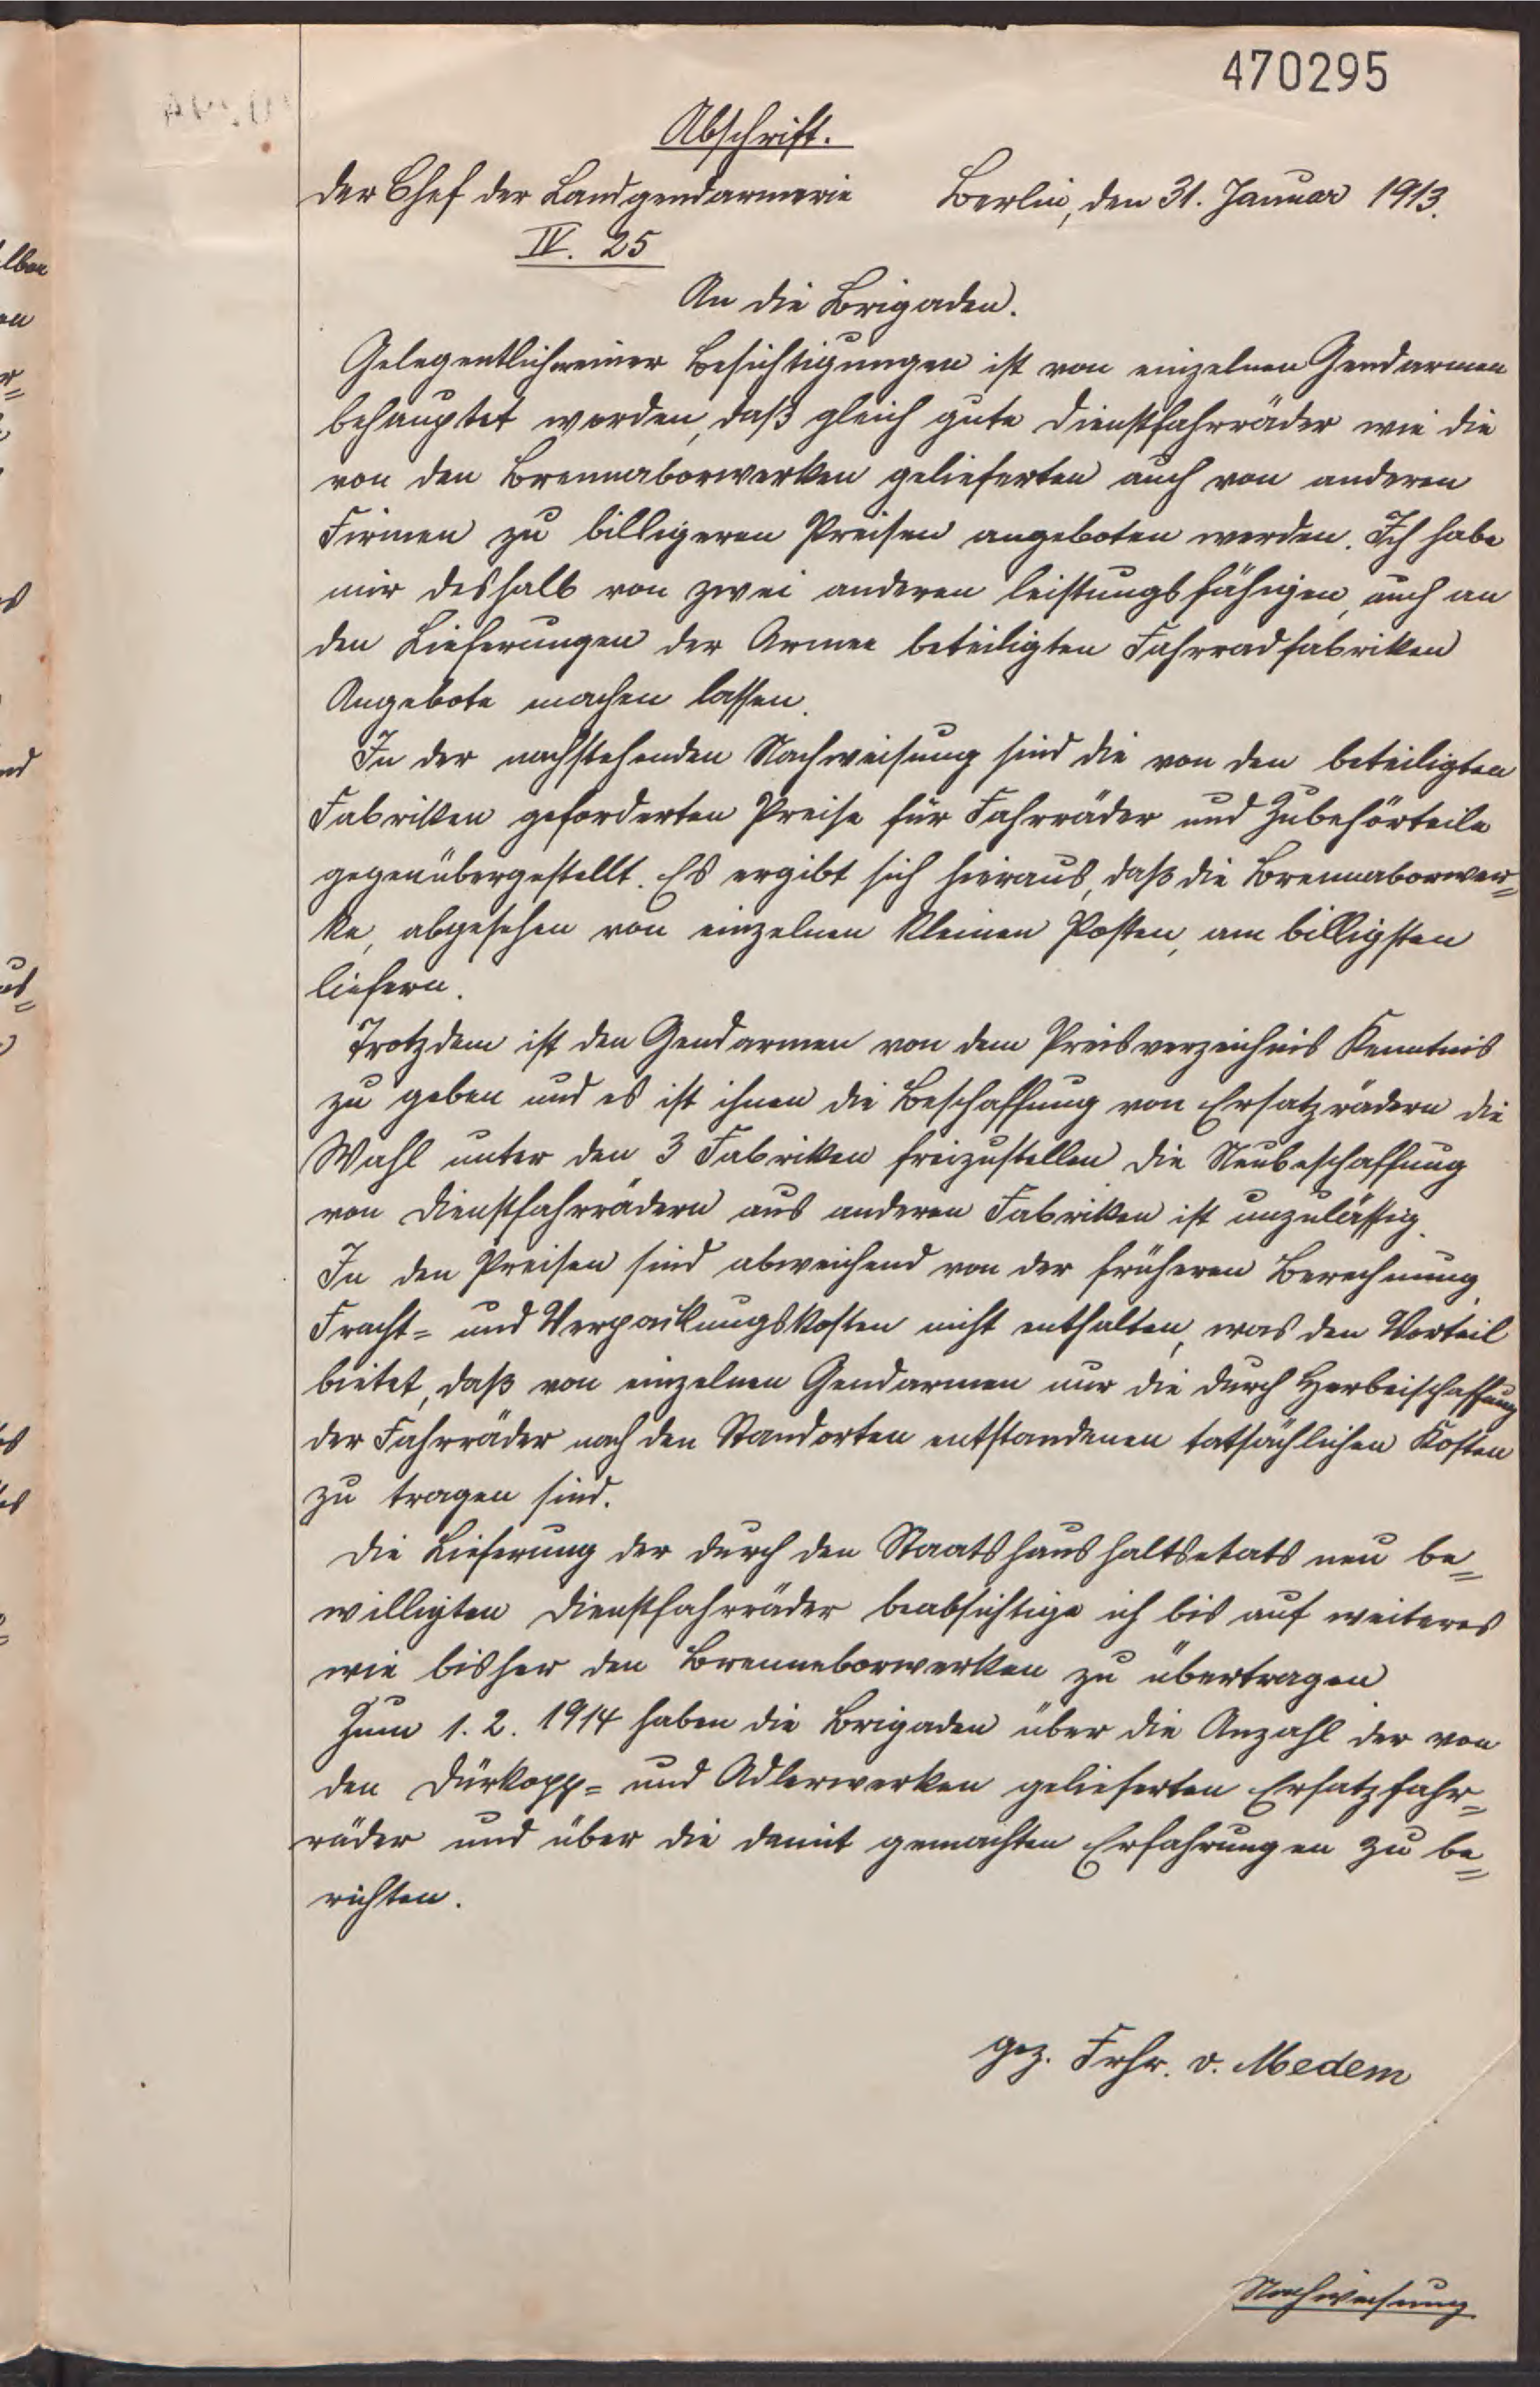 470295
Abschrift.
Der Chef der Landgendarmerie Berlin, den 31. Januar 1913.
IV. 25
An die Brigaden.
Gelegentlich meiner Besichtigungen ist von einzelnen Gendarmen
behauptet worden, daß gleich gute Dienstfahrräder wie die
von den Brennaborwerken gelieferten auch von anderen
Firmen zu billigeren Preisen angeboten werden. Ich habe
mir deshalb von zwei anderen leistungsfähigen, auch an
den Lieferungen der Armee beteiligten Fahrradfabriken
Angebote machen lassen.
In der nachstehenden Nachweisung sind die von den beteiligten
Fabriken geforderten Preise für Fahrräder und Zubehörteile
gegenübergestellt. Es ergibt sich hieraus, daß die Brennaborwer=
ke, abgesehen von einzelnen kleinen Posten, am billigsten
liefern.
Trotzdem ist den Gendarmen von dem Preisverzeichnis Kenntnis
zu geben und es ist ihnen die Beschaffung von Ersatzrädern die
Wahl unter den 3 Fabriken freizustellen die Neubeschaffung
von Dienstfahrrädern aus anderen Fabriken ist unzulässig.
In den Preisen sind abweichend von der früheren Berechnung
Fracht= und Verpackungskosten nicht enthalten, was den Vorteil
bietet, daß von einzelnen Gendarmen nur die durch Herbeischaffung
der Fahrräder nach den Standorten entstandenen tatsächlichen Kosten
zu tragen sind.
Die Lieferung der durch den Staatshaushaltsetats neu be=
willigten Dienstfahrräder beabsichtige ich bis auf weiteres
wie bisher den Brenneborwerken zu übertragen
Zum 1. 2. 1914 haben die Brigaden über die Anzahl der von
den Dürkopp= und Adlerwerken gelieferten Ersatzfahr=
räder und über die damit gemachten Erfahrungen zu be=
richten.
gez. Frhr. v. Medem
Nachweisung